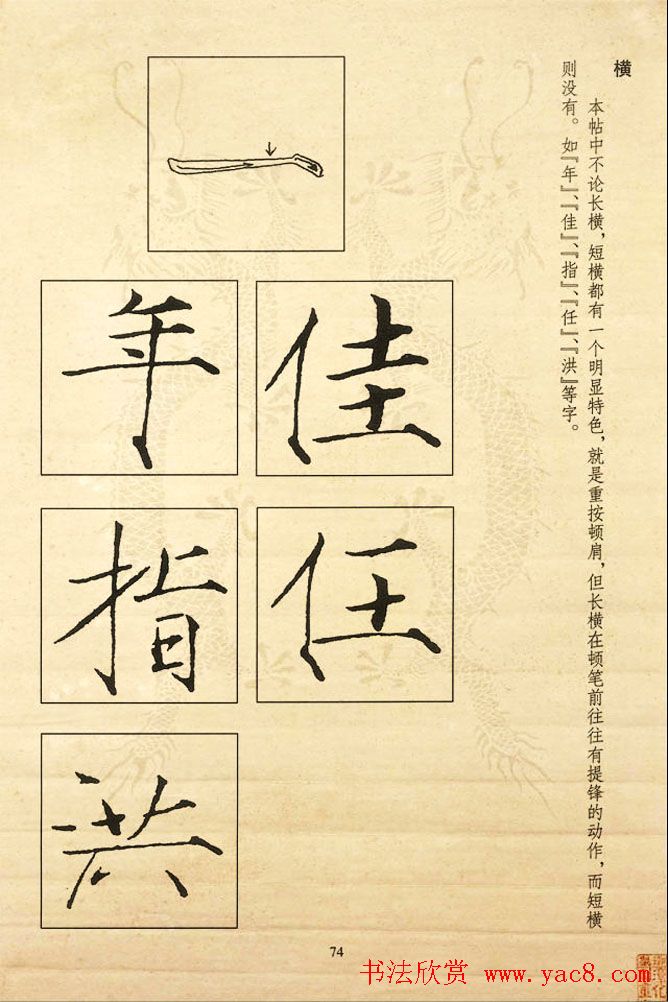 横
本帖中不论长横，短横都有一个明显特色，就是重按顿肩，但长横在顿笔前往往有提锋的动作，而短横
则没有。如『年』、『佳』、『指』、『任』、『洪』等字。
一
年
佳
指
任
洪
74
书法欣赏 www.yac8.com